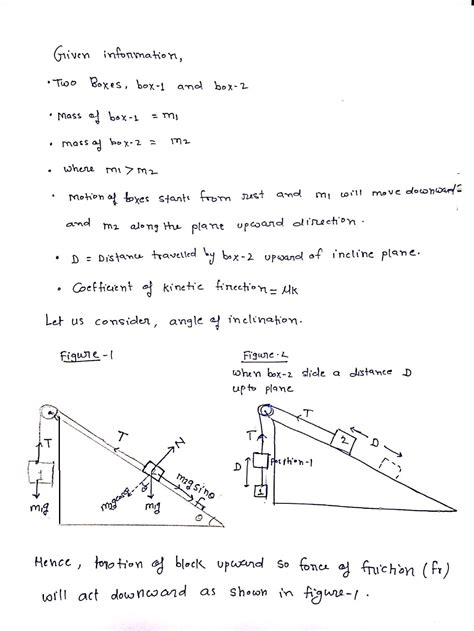 Given information,
• Two Boxes, box-1 and box-2
• Mass of box-1 = m1
• mass of box-2 = m2
• where m1 > m2
• Motion of boxes starts from rest and m1 will move downward
and m2 along the plane upward direction.
• D = Distance travelled by box-2 upward of incline plane.
• Coefficient of kinetic firection = μk
Let us consider, angle of inclination.
Figure-1
Figure-2
when box-2 slide a distance D
upto plane
T
T
N
1
m1g
m2g cosθ
m2g
m2g sinθ
fr
θ
T
T
2
D
D
position-1
1
Hence, motion of block upward so force of friction (fr)
will act downward as shown in figure-1.